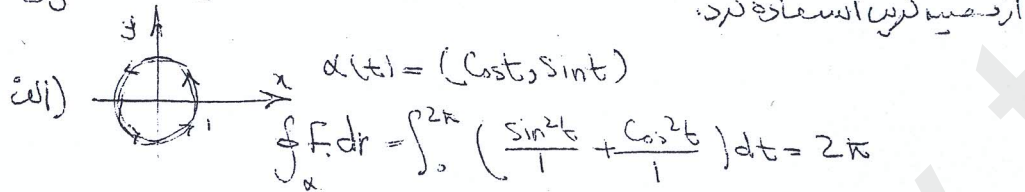 از قضیه گرین استفاده کرد.
الف)
y
x
1
α(t) = (Cost, Sint)
∮_α F.dr = ∫_0^{2π} ( Sin²t/1 + Cos²t/1 ) dt = 2π